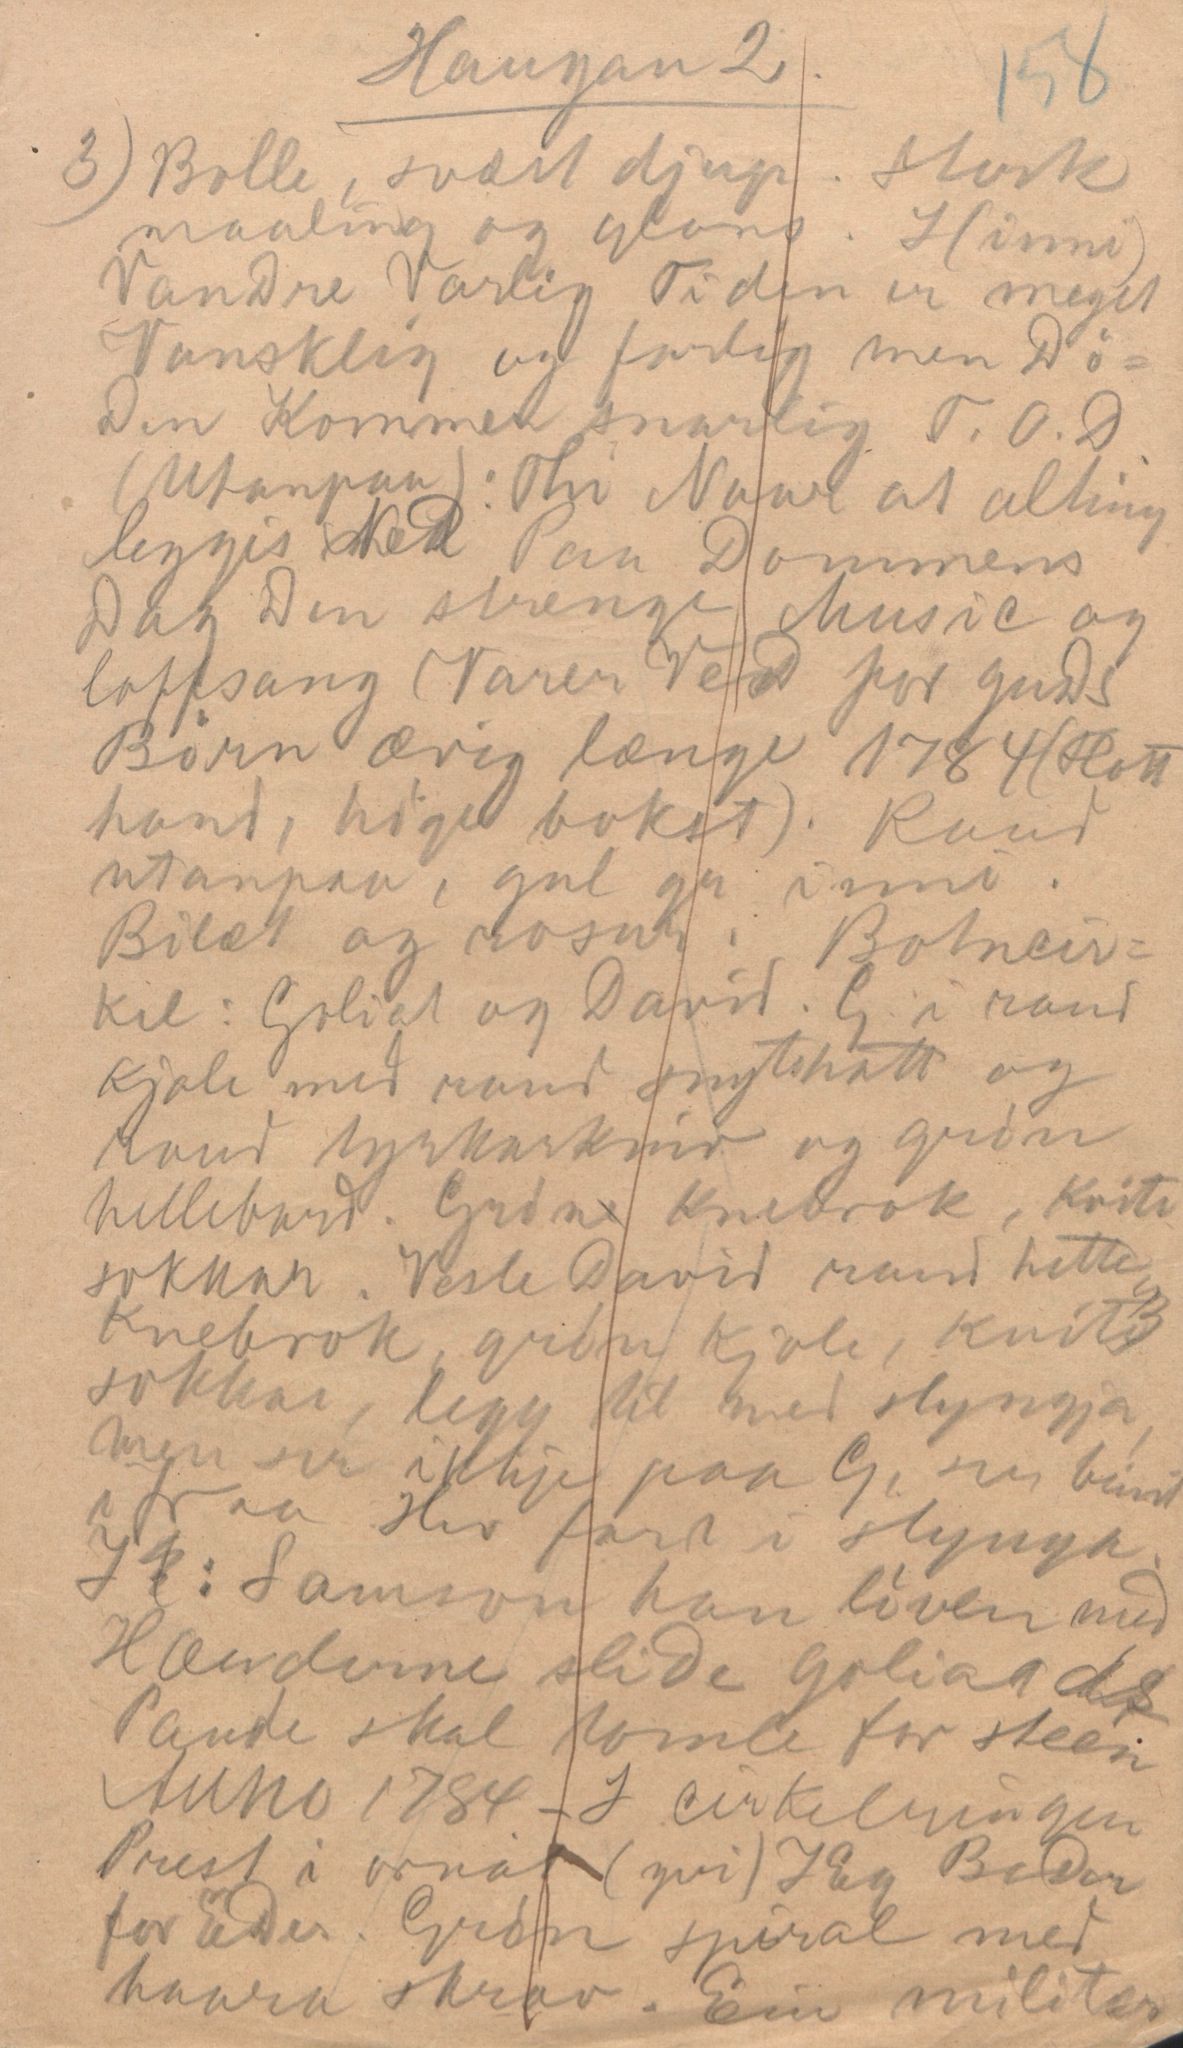 Haugan 2.
158
3) Bolle, svært djup. Sterk
maaling og glans. I (inni)
VanDre Varlig Tiden er meget
Vansklig og farlig men Dö=
Den Kommer snarlig T. O. D
(Utanpaa): Thi Naar at alting
leggis NeD Paa Dommens
Dag Den strenge Music og
loffsang Varer VeD for guDs
Börn ævig længe 1784 (Flott
hand, höge bokst). Raud
utanpaa, gul gr inni.
Bilæt og rosur. Botncir=
kel: Goliat og David. G. i raud
kjole med raud snytshatt og
raud tyrkarkniv og grön
hellebard. Gröne knebrok, kvite
sokkar. Vesle David raud hette og
knebrok, grön kjole, kvite
sokkar, legg til med slyngja,
men ser ikkje paa G, ser beint
ifraa seg. Stor fart i slynga.
I : Samson han löven med
Hænderne sliDe goliaads
Pande skal tomle for steen
Anno 1784 – I cirkelringen
Prest i ornat (yvi) JEg BeDer
for EDer. Grön spiral med
haara skrav. Ein militær